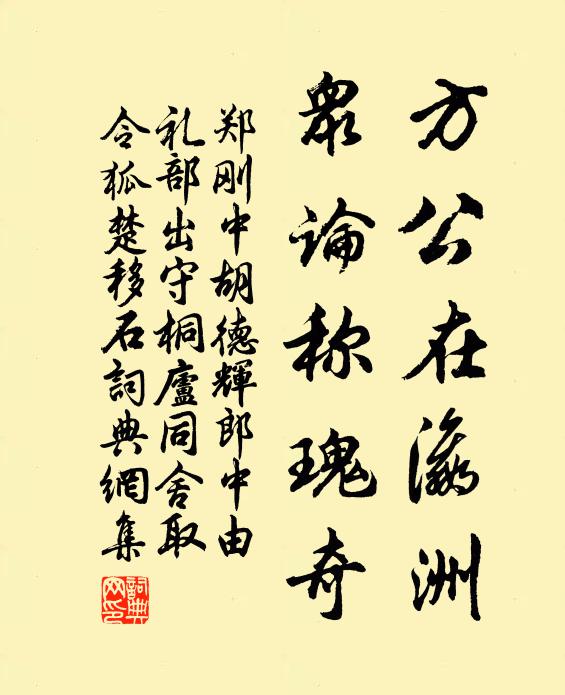 方公在瀛洲
眾論称瑰奇
郑刚中胡德輝郎中由
礼部出守桐廬同舍取
令狐楚移石詞典網集
詞典網印